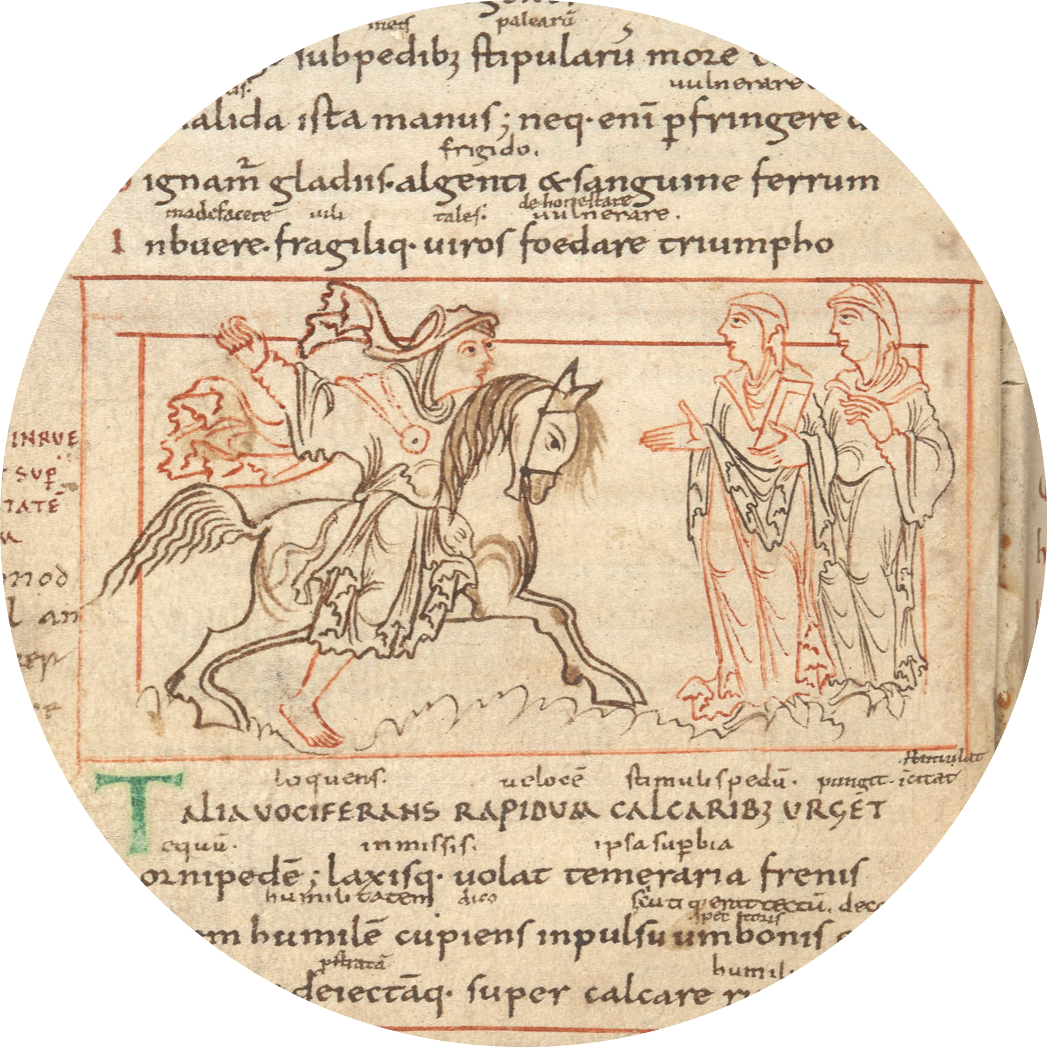 palearū
sub pedibꝫ stipularū more
uulnerare
alida ista manus; neq· enī p̄fringere
frigido.
ignam̄ gladiis· algenti & sanguine ferrum
madefacere uili tales· dehonestare
uulnerare.
Inbuere· fragiliq· uiros foedare triumpho
INRUE
SUP̄
TATĒ
loquens· uelocē stimulis pedū· pungit· icitat
TALIA VOCIFERANS RAPIDUM CALCARIBꝫ URGET
equū· inmissis· ipsa supbia
ornipedē; laxisq· uolat temeraria frenis
humilitatem dico
m humilē cupiens inpulsu umbonis
pstratā humil
deiectāq· super calcare